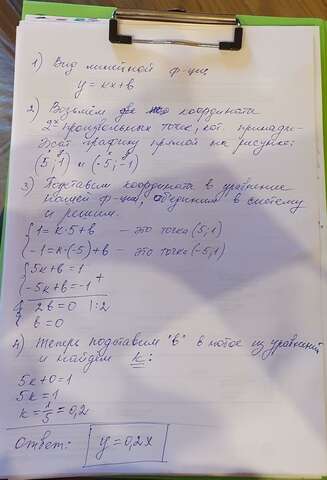 1) Вид линейной ф-ции
y = kx+b
2) Возьмём координаты
2ˣ произвольных точек, кот. принадле-
жат графику прямой на рисунке:
(5; 1) и (-5; -1)
3) Подставим координаты в уравнение
нашей ф-ции, объединим в систему
и решим.
{1 = k·5+b — это точка (5; 1)
-1 = k·(-5)+b — это точка (-5; 1)
{5k+b = 1
-5k+b = -1 +
2b = 0 |:2
b = 0
4) Теперь подставим "b" в любое из уравнений
и найдём k:
5k+0=1
5k = 1
k = 1/5 = 0,2
Ответ: y = 0,2x